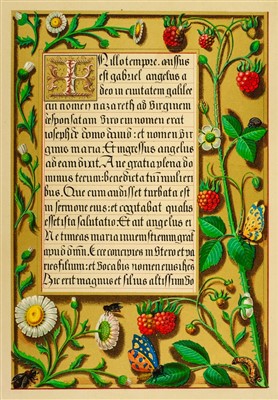 In illo tempore. missus
est gabriel angelus a
deo in civitatem galilee
cui nomen nazareth ad virginem
desponsatam viro cui nomen erat
ioseph de domo david: et nomen vir
ginis maria. Et ingressus angelus
ad eam dixit. Ave gratia plena do
minus tecum: benedicta tu in mulieri
bus. Que cum audisset turbata est
in sermone eius: et cogitabat qualis
esset ista salutatio. Et ait angelus ei
Ne timeas maria invenisti enim gratiam
apud deum. Ecce concipies in utero et pa
ries filium: et vocabis nomen eius
Hic erit magnus et filius altissimi vo